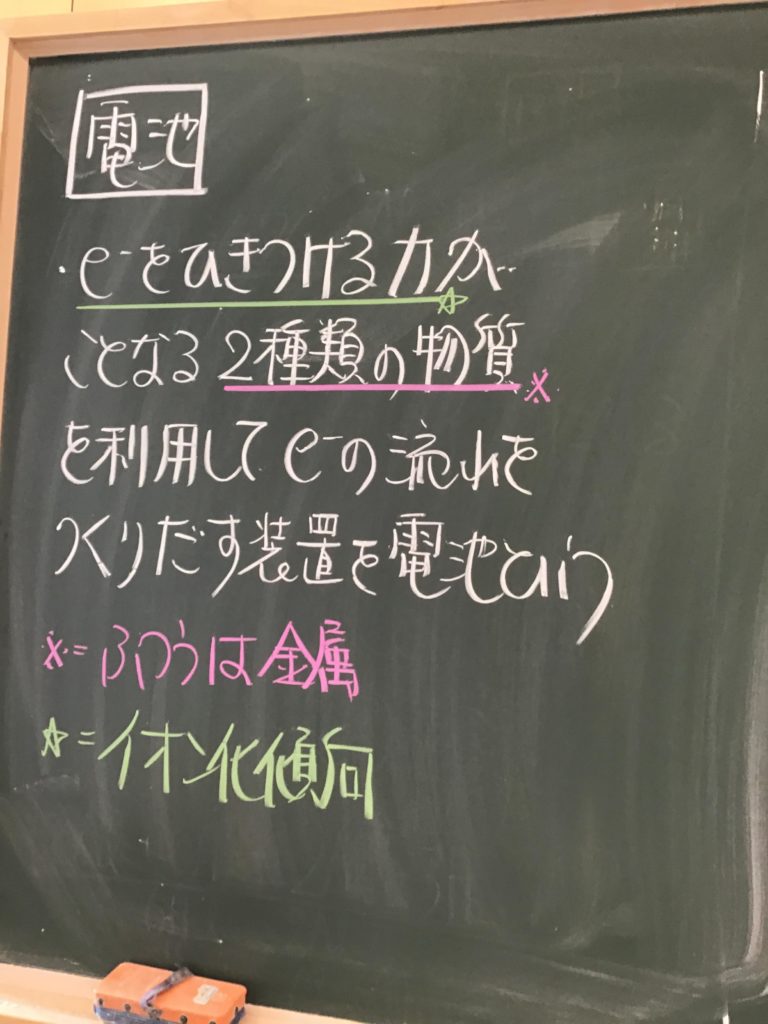 電池
・e⁻をひきつける力が☆
ことなる2種類の物質※
を利用してe⁻の流れを
つくりだす装置を電池という
※=ふつうは金属
☆=イオン化傾向